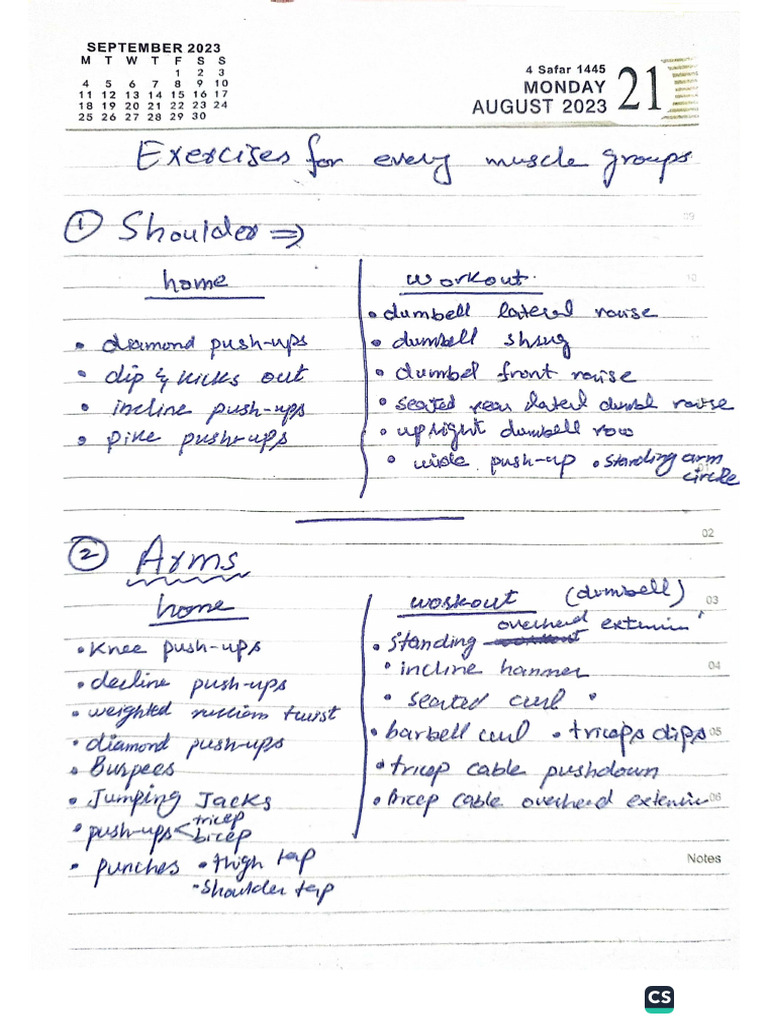 SEPTEMBER 2023
M T W T F S S
1 2 3
4 5 6 7 8 9 10
11 12 13 14 15 16 17
18 19 20 21 22 23 24
25 26 27 28 29 30
4 Safar 1445
MONDAY 21
AUGUST 2023
Exercises for every muscle groups
① Shoulder ⇒
home
• diamond push-ups
• dip & kicks out
• incline push-ups
• pike push-ups
workout.
• dumbell lateral raise
• dumbell shrug
• dumbel front raise
• seated rear lateral dumbl raise
• upright dumbell row
• wide push-up • standing arm
circle
09
10
11
01
02
② Arms
home
• Knee push-ups
• decline push-ups
• weighted russiem twist
• diamond push-ups
• Burpees
• Jumping Jacks
• push-ups < tricep
bicep
• punches • thigh tap
• shoulder tap
workout (dumbell)
• standing overhead extensin
• incline hammer
• seated curl •
• barbell curl • triceps dips
• tricep cable pushdown
• tricep cable overhead extensin
03
04
05
06
Notes
CS